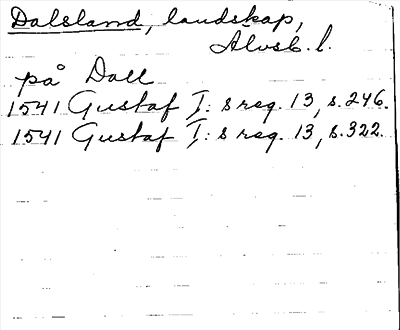 Dalsland, landskap,
Älvsb. l.
på Dall
1541 Gustaf I:s reg. 13, s. 246.
1541 Gustaf I:s reg. 13, s. 322.